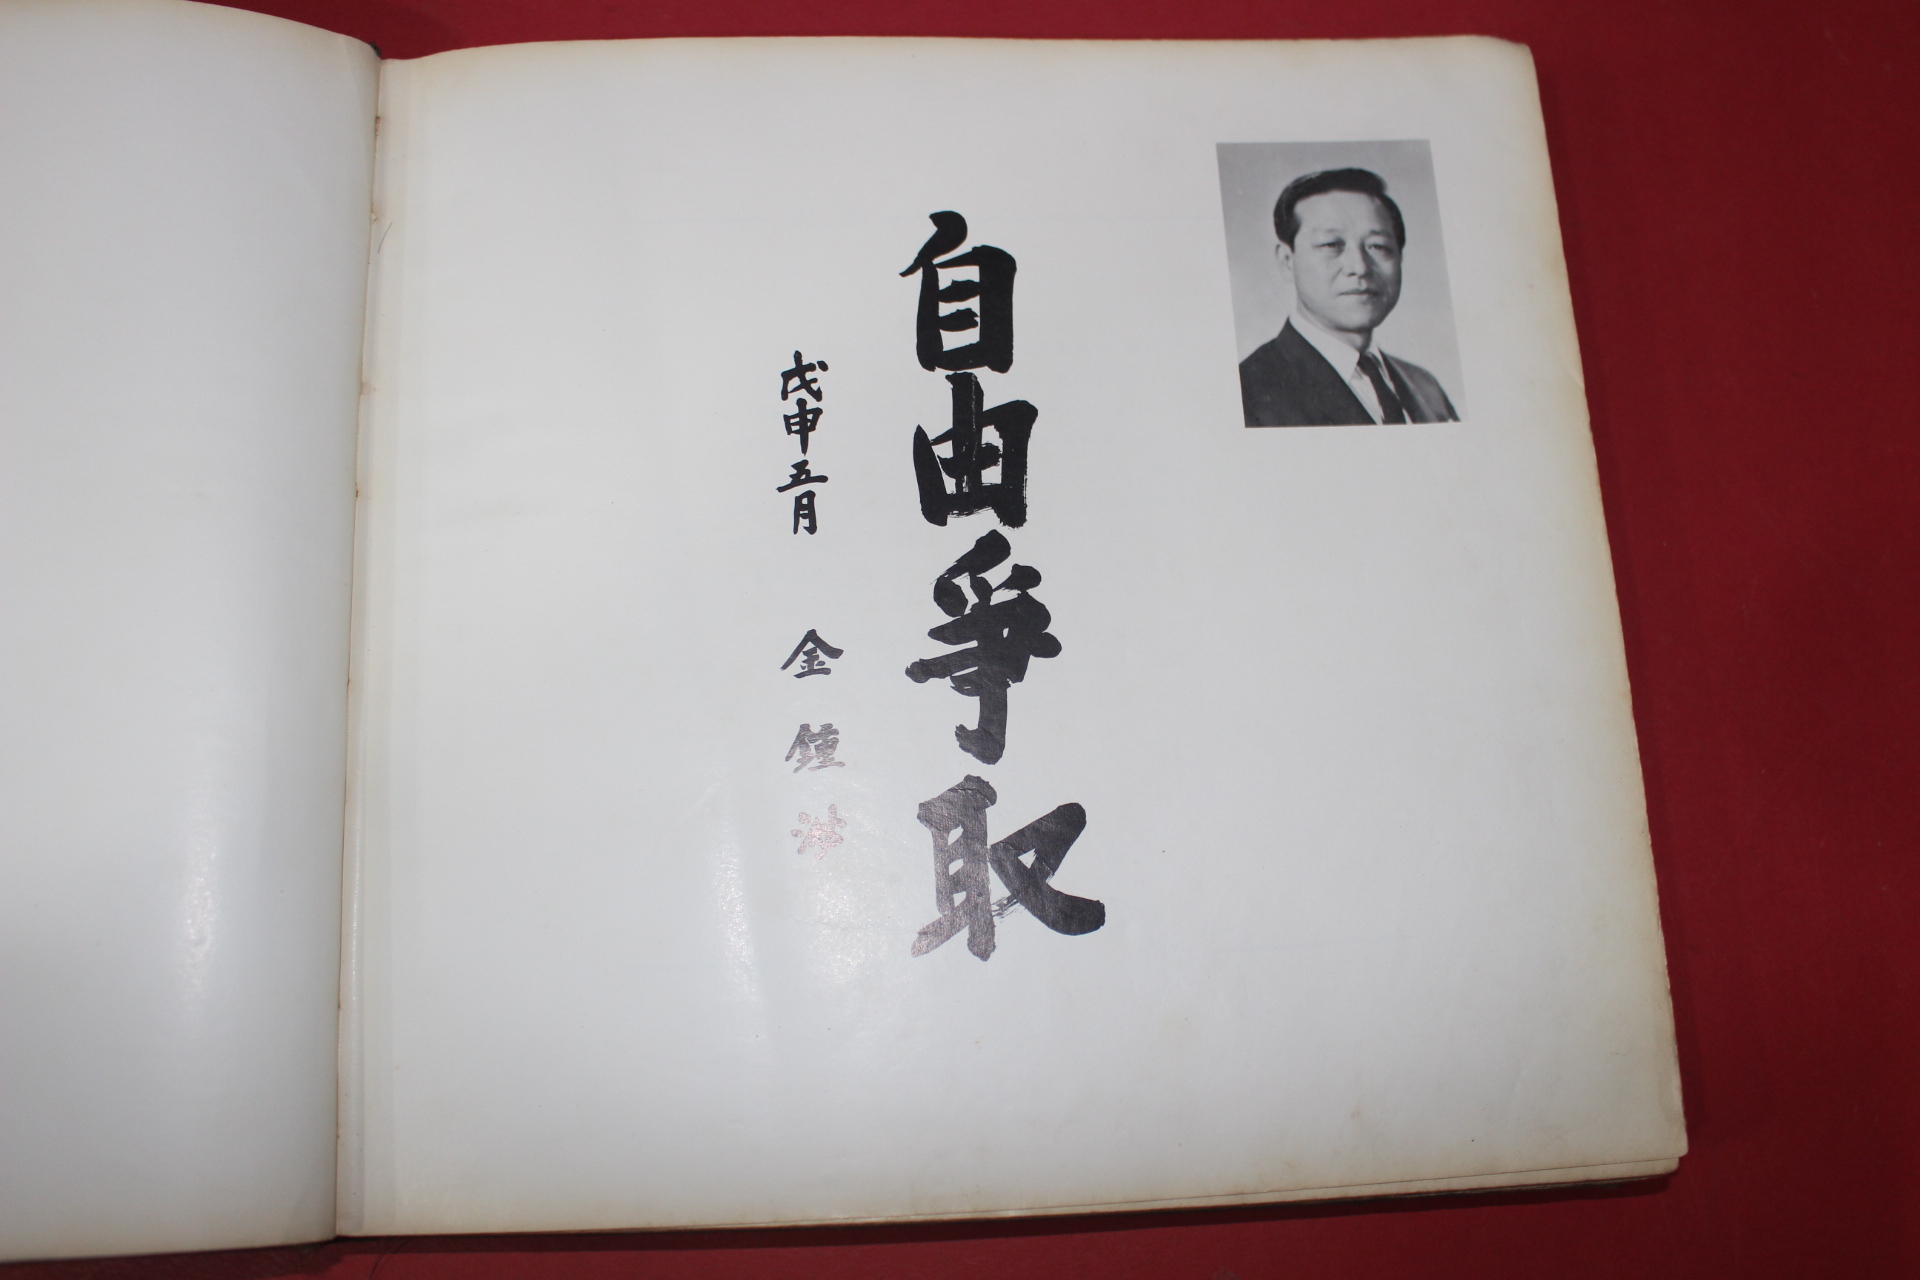 自由爭取
戊申五月 金鍾泌